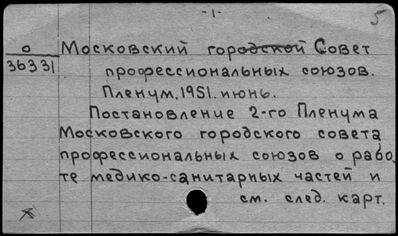 -1-
5
о
36331
Московский городской Совет
профессиональных союзов.
Пленум, 1951. июнь.
Постановление 2-го Пленума
Московского городского совета
профессиональных союзов о рабо-
те медико-санитарных частей и
см. след. карт.